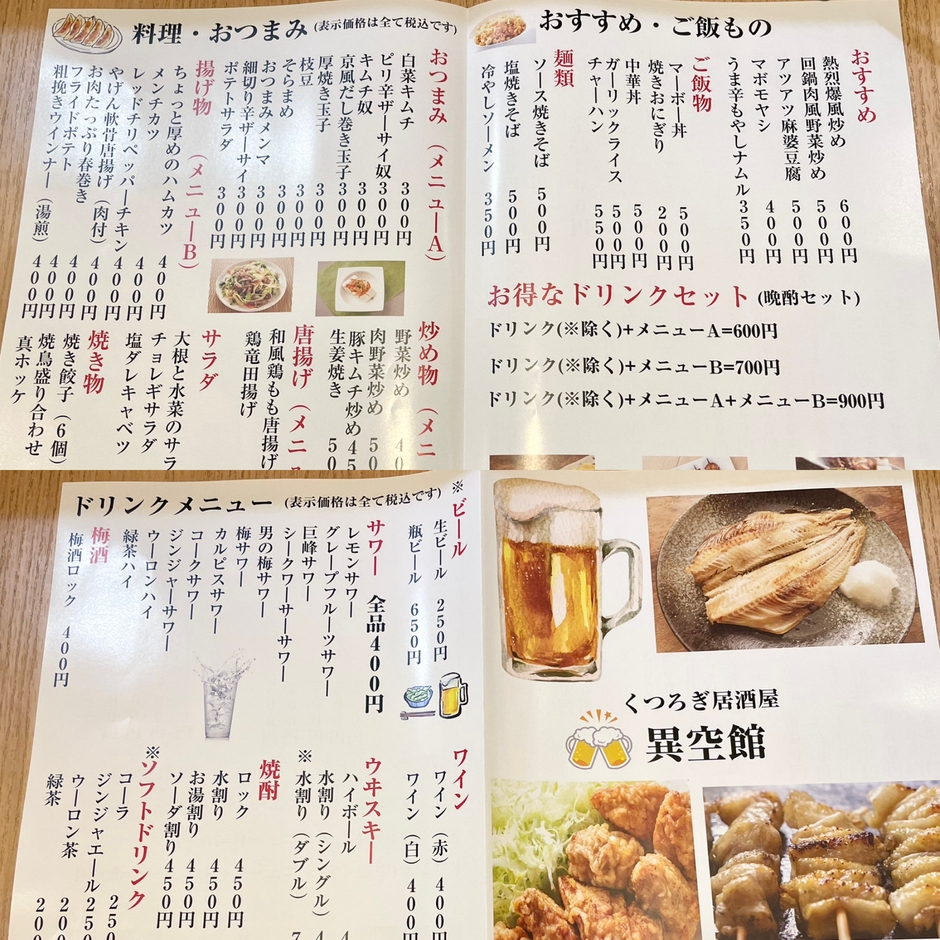 料理・おつまみ (表示価格は全て税込です)
おつまみ (メニューA)
白菜キムチ 300円
ピリ辛ザーサイ奴 300円
キムチ奴 300円
京風だし巻き玉子 300円
厚焼き玉子 300円
枝豆 300円
そらまめ 300円
おつまみメンマ 300円
細切り辛ザーサイ 300円
ポテトサラダ 300円
揚げ物 (メニューB)
ちょっと厚めのハムカツ 400円
メンチカツ 400円
レッドチリペッパーチキン 400円
やげん軟骨唐揚げ(肉付) 400円
お肉たっぷり春巻き 400円
フライドポテト 400円
粗挽きウインナー(湯煎) 400円
炒め物 (メニ
野菜炒め 40
肉野菜炒め 50
豚キムチ炒め 45
生姜焼き 50
唐揚げ (メニュ
和風鶏もも唐揚げ
鶏竜田揚げ
サラダ
大根と水菜のサラ
チョレギサラダ
塩ダレキャベツ
焼き物
焼き餃子(6個)
焼鳥盛り合わせ
真ホッケ
おすすめ・ご飯もの
おすすめ
熱烈爆風炒め 600円
回鍋肉風野菜炒め 500円
アツアツ麻婆豆腐 500円
マボモヤシ 400円
うま辛もやしナムル 350円
ご飯物
マーボー丼 500円
焼きおにぎり 200円
中華丼 500円
ガーリックライス 500円
チャーハン 550円
麺類
ソース焼きそば 500円
塩焼きそば 500円
冷やしソーメン 350円
お得なドリンクセット (晩酌セット)
ドリンク(※除く)+メニューA=600円
ドリンク(※除く)+メニューB=700円
ドリンク(※除く)+メニューA+メニューB=900円
ドリンクメニュー (表示価格は全て税込です)
※ビール
生ビール 250円
瓶ビール 650円
サワー 全品400円
レモンサワー
グレープフルーツサワー
巨峰サワー
シークワーサーサワー
男の梅サワー
梅サワー
カルピスサワー
コークサワー
ジンジャーサワー
ウーロンハイ
緑茶ハイ
梅酒
梅酒ロック 400円
ワイン
ワイン(赤) 400円
ワイン(白) 400円
ウヰスキー
ハイボール 4
水割り(シングル) 4
※水割り(ダブル) 7
焼酎
ロック 450円
水割り 450円
お湯割り 450円
ソーダ割り 450円
※ソフトドリンク
コーラ 250
ジンジャエール 250
ウーロン茶 200
緑茶 20
くつろぎ居酒屋
異空館